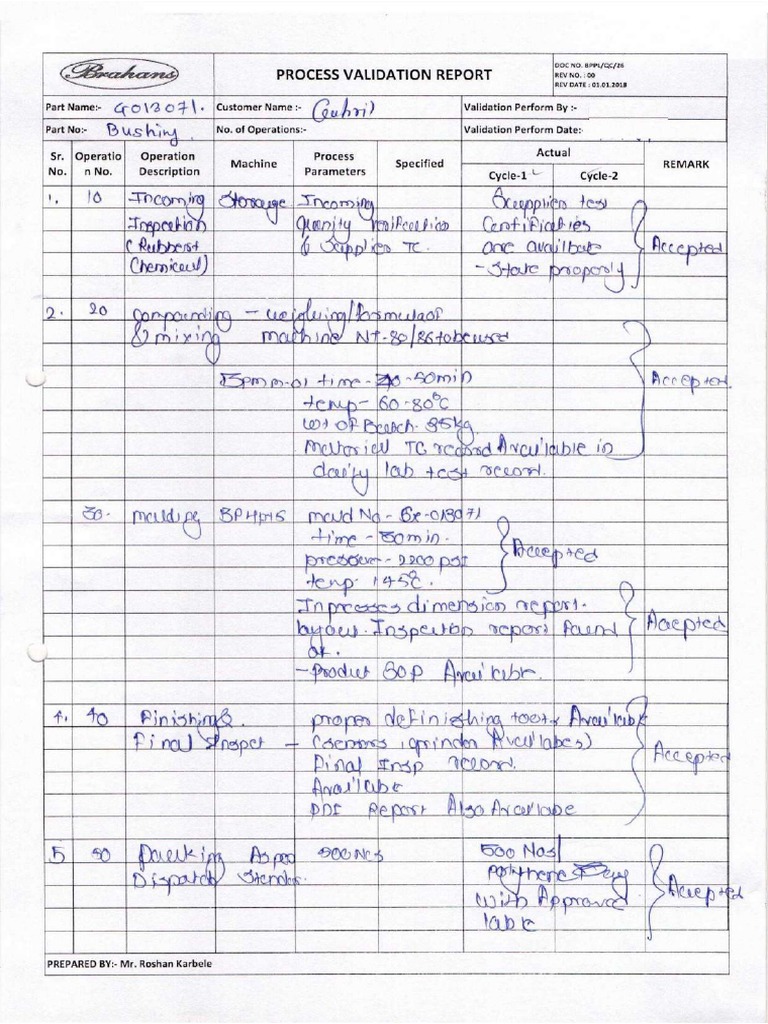 Brahans
PROCESS VALIDATION REPORT
DOC NO. BPPL/QC/26
REV NO. : 00
REV DATE : 01.01.2018
Part Name:- G013071. Customer Name :-
Validation Perform By :-
Part No:- Bushing No. of Operations:-
Validation Perform Date:-
Sr. No. Operatio n No. Operation Description Machine Process Parameters Specified Actual REMARK
Cycle-1 Cycle-2
1. 10 Incoming Storage Incoming test
Inspection verification Certificaties
(Rubber & & Supplier TC. are availbale Accepted
Chemical) - properly
2. 20 compounding - weighing/formula of
& mixing machine NT-80/86 to be used
time - -50min Accepted.
temp - 60-80°C
wt of Batch- 35kg
Material TC record Available in
daily lab test record.
30. moulding mould No - -013071
time - 30min. Accepted
pressure - 2200 psi
temp 145°C.
dimension report. Accepted
layout. Inspection report found
ok.
- Product SOP Available.
4. 40 Finishing & proper definishing tools Available
Final Inspet - grinder Availables)
Final Insp record. Accepted
Available
PDI Report Also Available
5 50 Packing As per 500Nos 500 Nos/
Dispatch
with Approved Accepted
lable
PREPARED BY:- Mr. Roshan Karbele